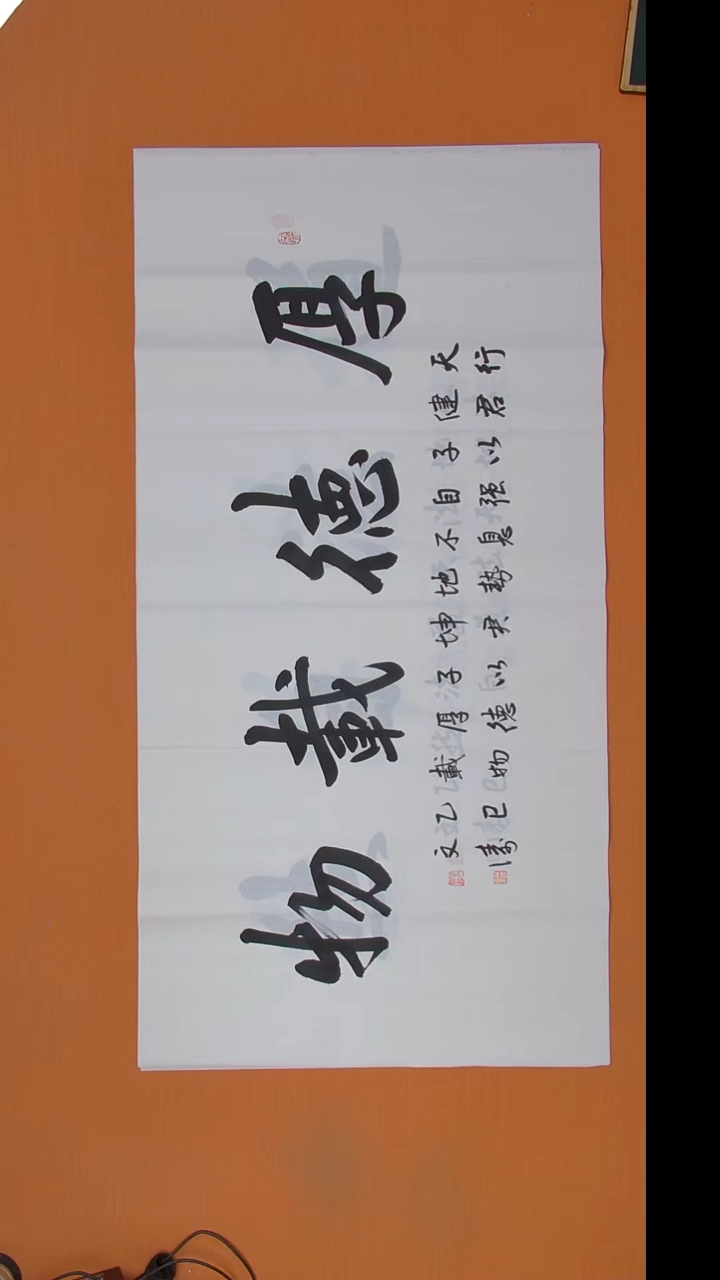 厚德載物
天行
健君
子以
自强
不息
地勢
坤君
子以
厚德
載物
乙巳
文濤